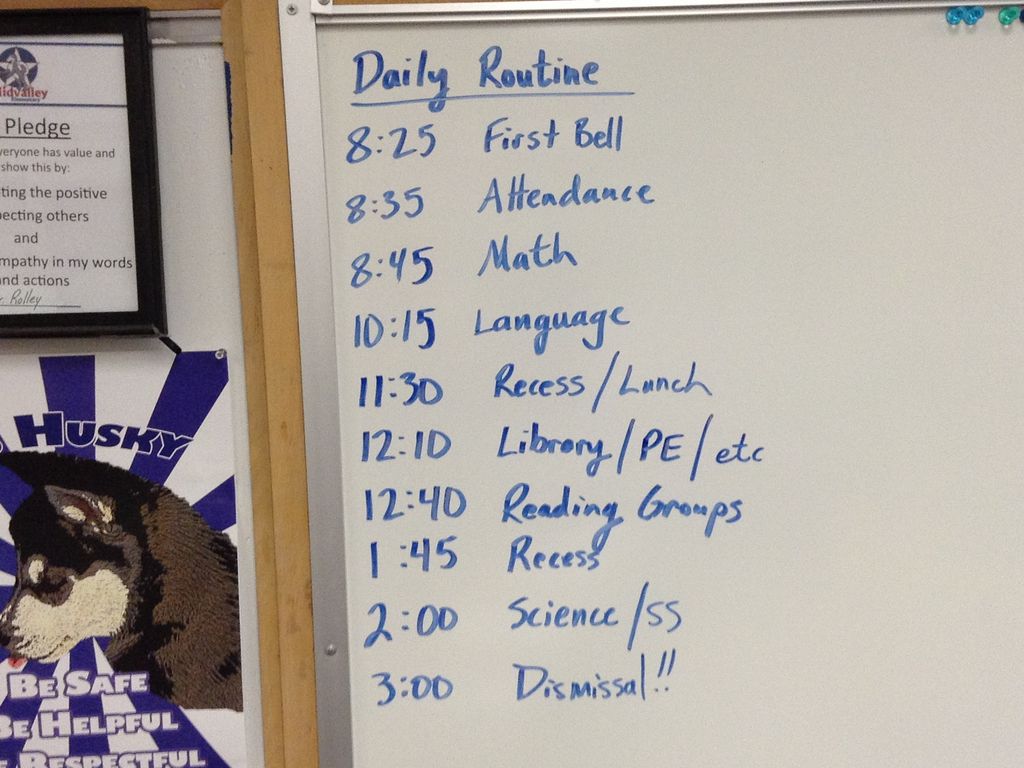 Daily Routine
8:25 First Bell
8:35 Attendance
8:45 Math
10:15 Language
11:30 Recess/Lunch
12:10 Library/PE/etc
12:40 Reading Groups
1:45 Recess
2:00 Science/SS
3:00 Dismissal!!
idvalley
Pledge
veryone has value and
show this by:
ting the positive
pecting others
and
mpathy in my words
nd actions
Rolley
HUSKY
BE SAFE
BE HELPFUL
E RESPECTFUL